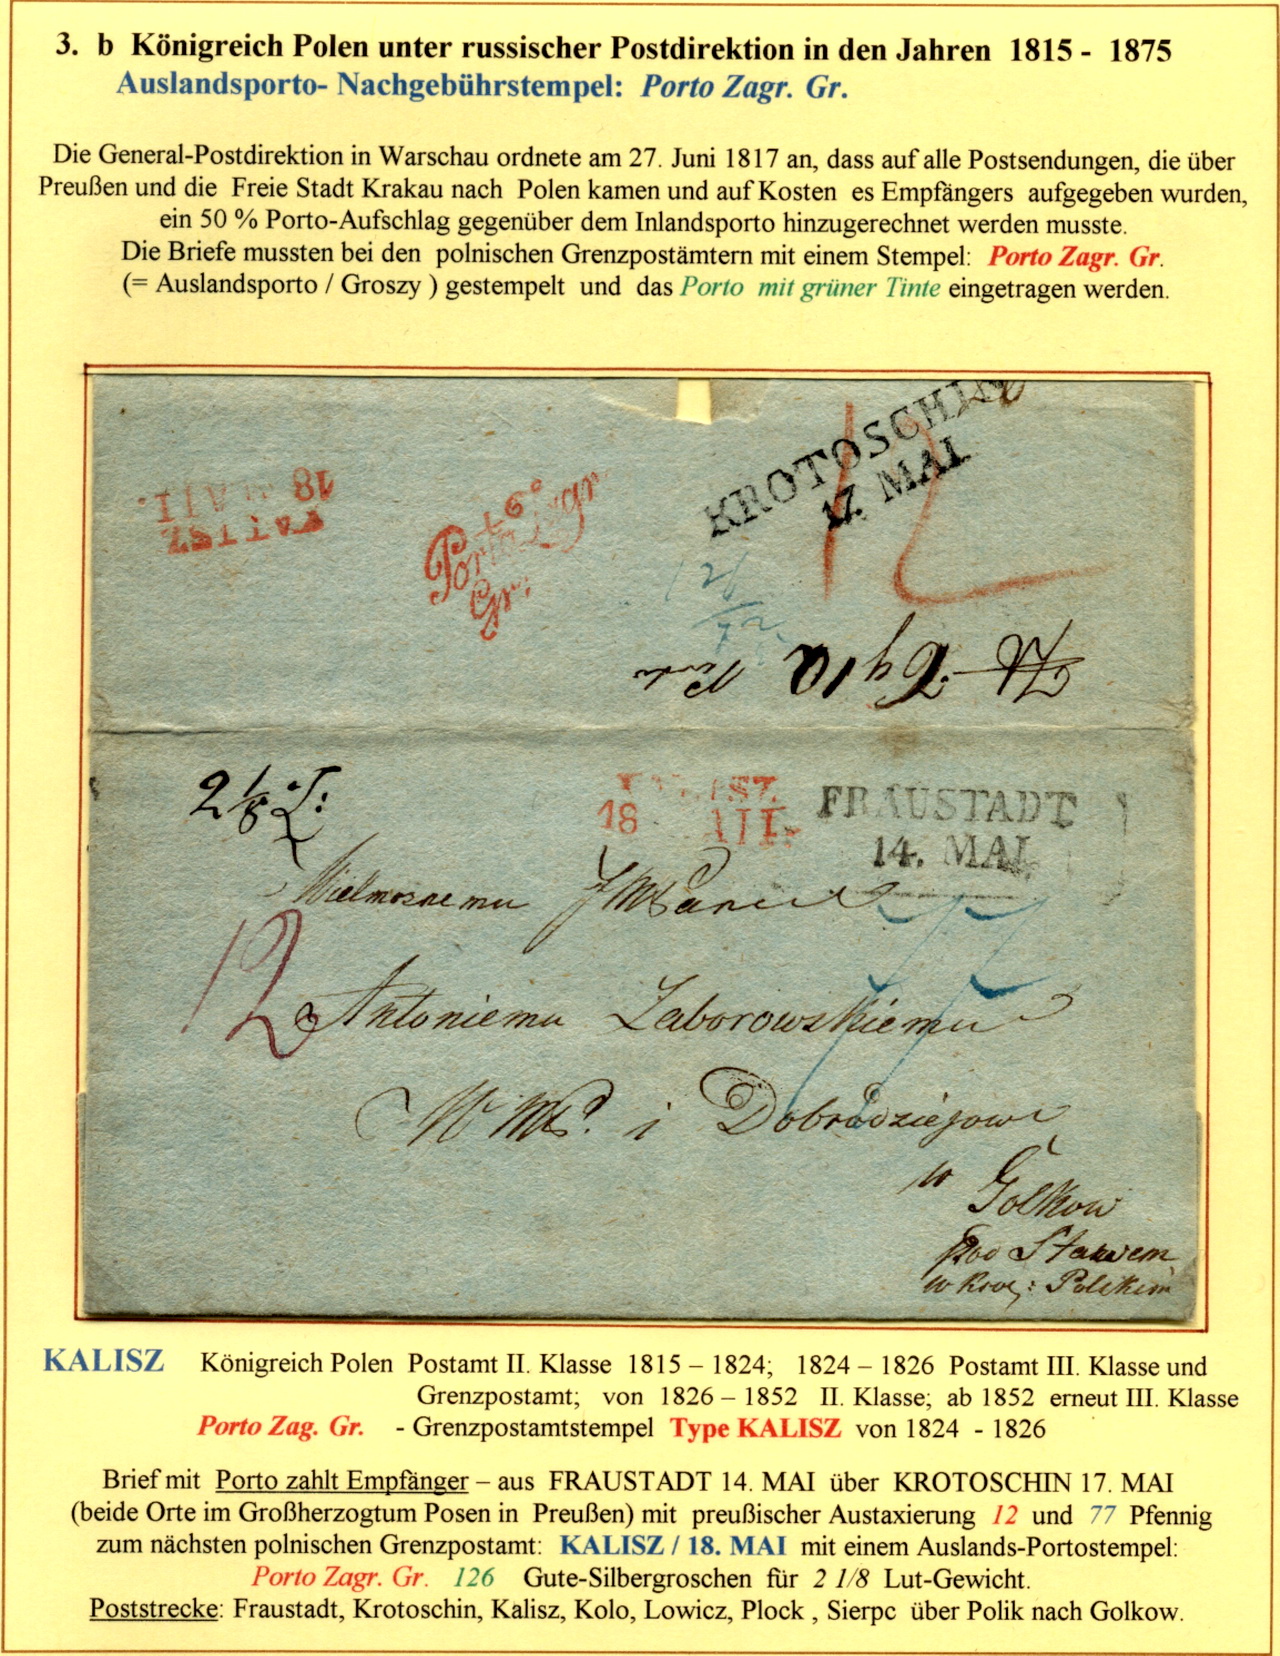 3. b Königreich Polen unter russischer Postdirektion in den Jahren 1815 - 1875
Auslandsporto- Nachgebührstempel: Porto Zagr. Gr.
Die General-Postdirektion in Warschau ordnete am 27. Juni 1817 an, dass auf alle Postsendungen, die über
Preußen und die Freie Stadt Krakau nach Polen kamen und auf Kosten es Empfängers aufgegeben wurden,
ein 50 % Porto-Aufschlag gegenüber dem Inlandsporto hinzugerechnet werden musste.
Die Briefe mussten bei den polnischen Grenzpostämtern mit einem Stempel: Porto Zagr. Gr.
(= Auslandsporto / Groszy ) gestempelt und das Porto mit grüner Tinte eingetragen werden.
KROTOSCHIN
17. MAI
12
18
Porto Zagr
Gr:
2 1/8 L:
18
FRAUSTADT
14. MAI.
Wielmoznemu JMPanu
12
77
Antoniemu Zaborowskiemu
i Dobrodziejowi
w Golkow
w Kroj: Polskim
KALISZ Königreich Polen Postamt II. Klasse 1815 – 1824; 1824 – 1826 Postamt III. Klasse und
Grenzpostamt; von 1826 – 1852 II. Klasse; ab 1852 erneut III. Klasse
Porto Zag. Gr. - Grenzpostamtstempel Type KALISZ von 1824 - 1826
Brief mit Porto zahlt Empfänger – aus FRAUSTADT 14. MAI über KROTOSCHIN 17. MAI
(beide Orte im Großherzogtum Posen in Preußen) mit preußischer Austaxierung 12 und 77 Pfennig
zum nächsten polnischen Grenzpostamt: KALISZ / 18. MAI mit einem Auslands-Portostempel:
Porto Zagr. Gr. 126 Gute-Silbergroschen für 2 1/8 Lut-Gewicht.
Poststrecke: Fraustadt, Krotoschin, Kalisz, Kolo, Lowicz, Plock , Sierpc über Polik nach Golkow.